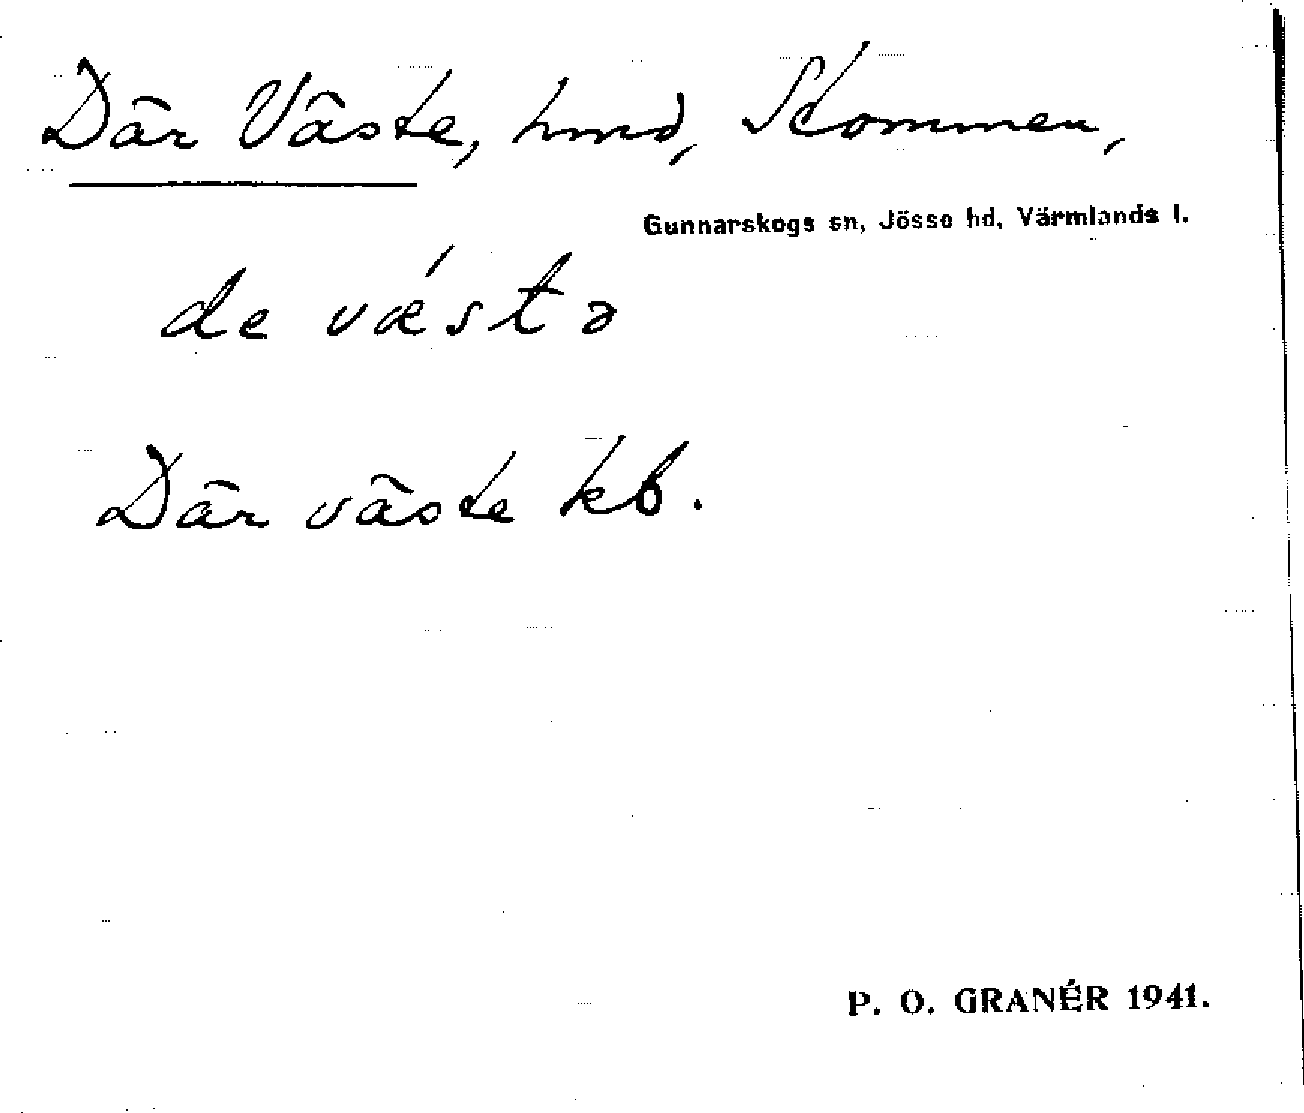 Där Väste, hmd, Skommen,
Gunnarskogs sn, Jösse hd, Värmlands l.
de væ´stə
Där väste kb.
P. O. GRANÉR 1941.